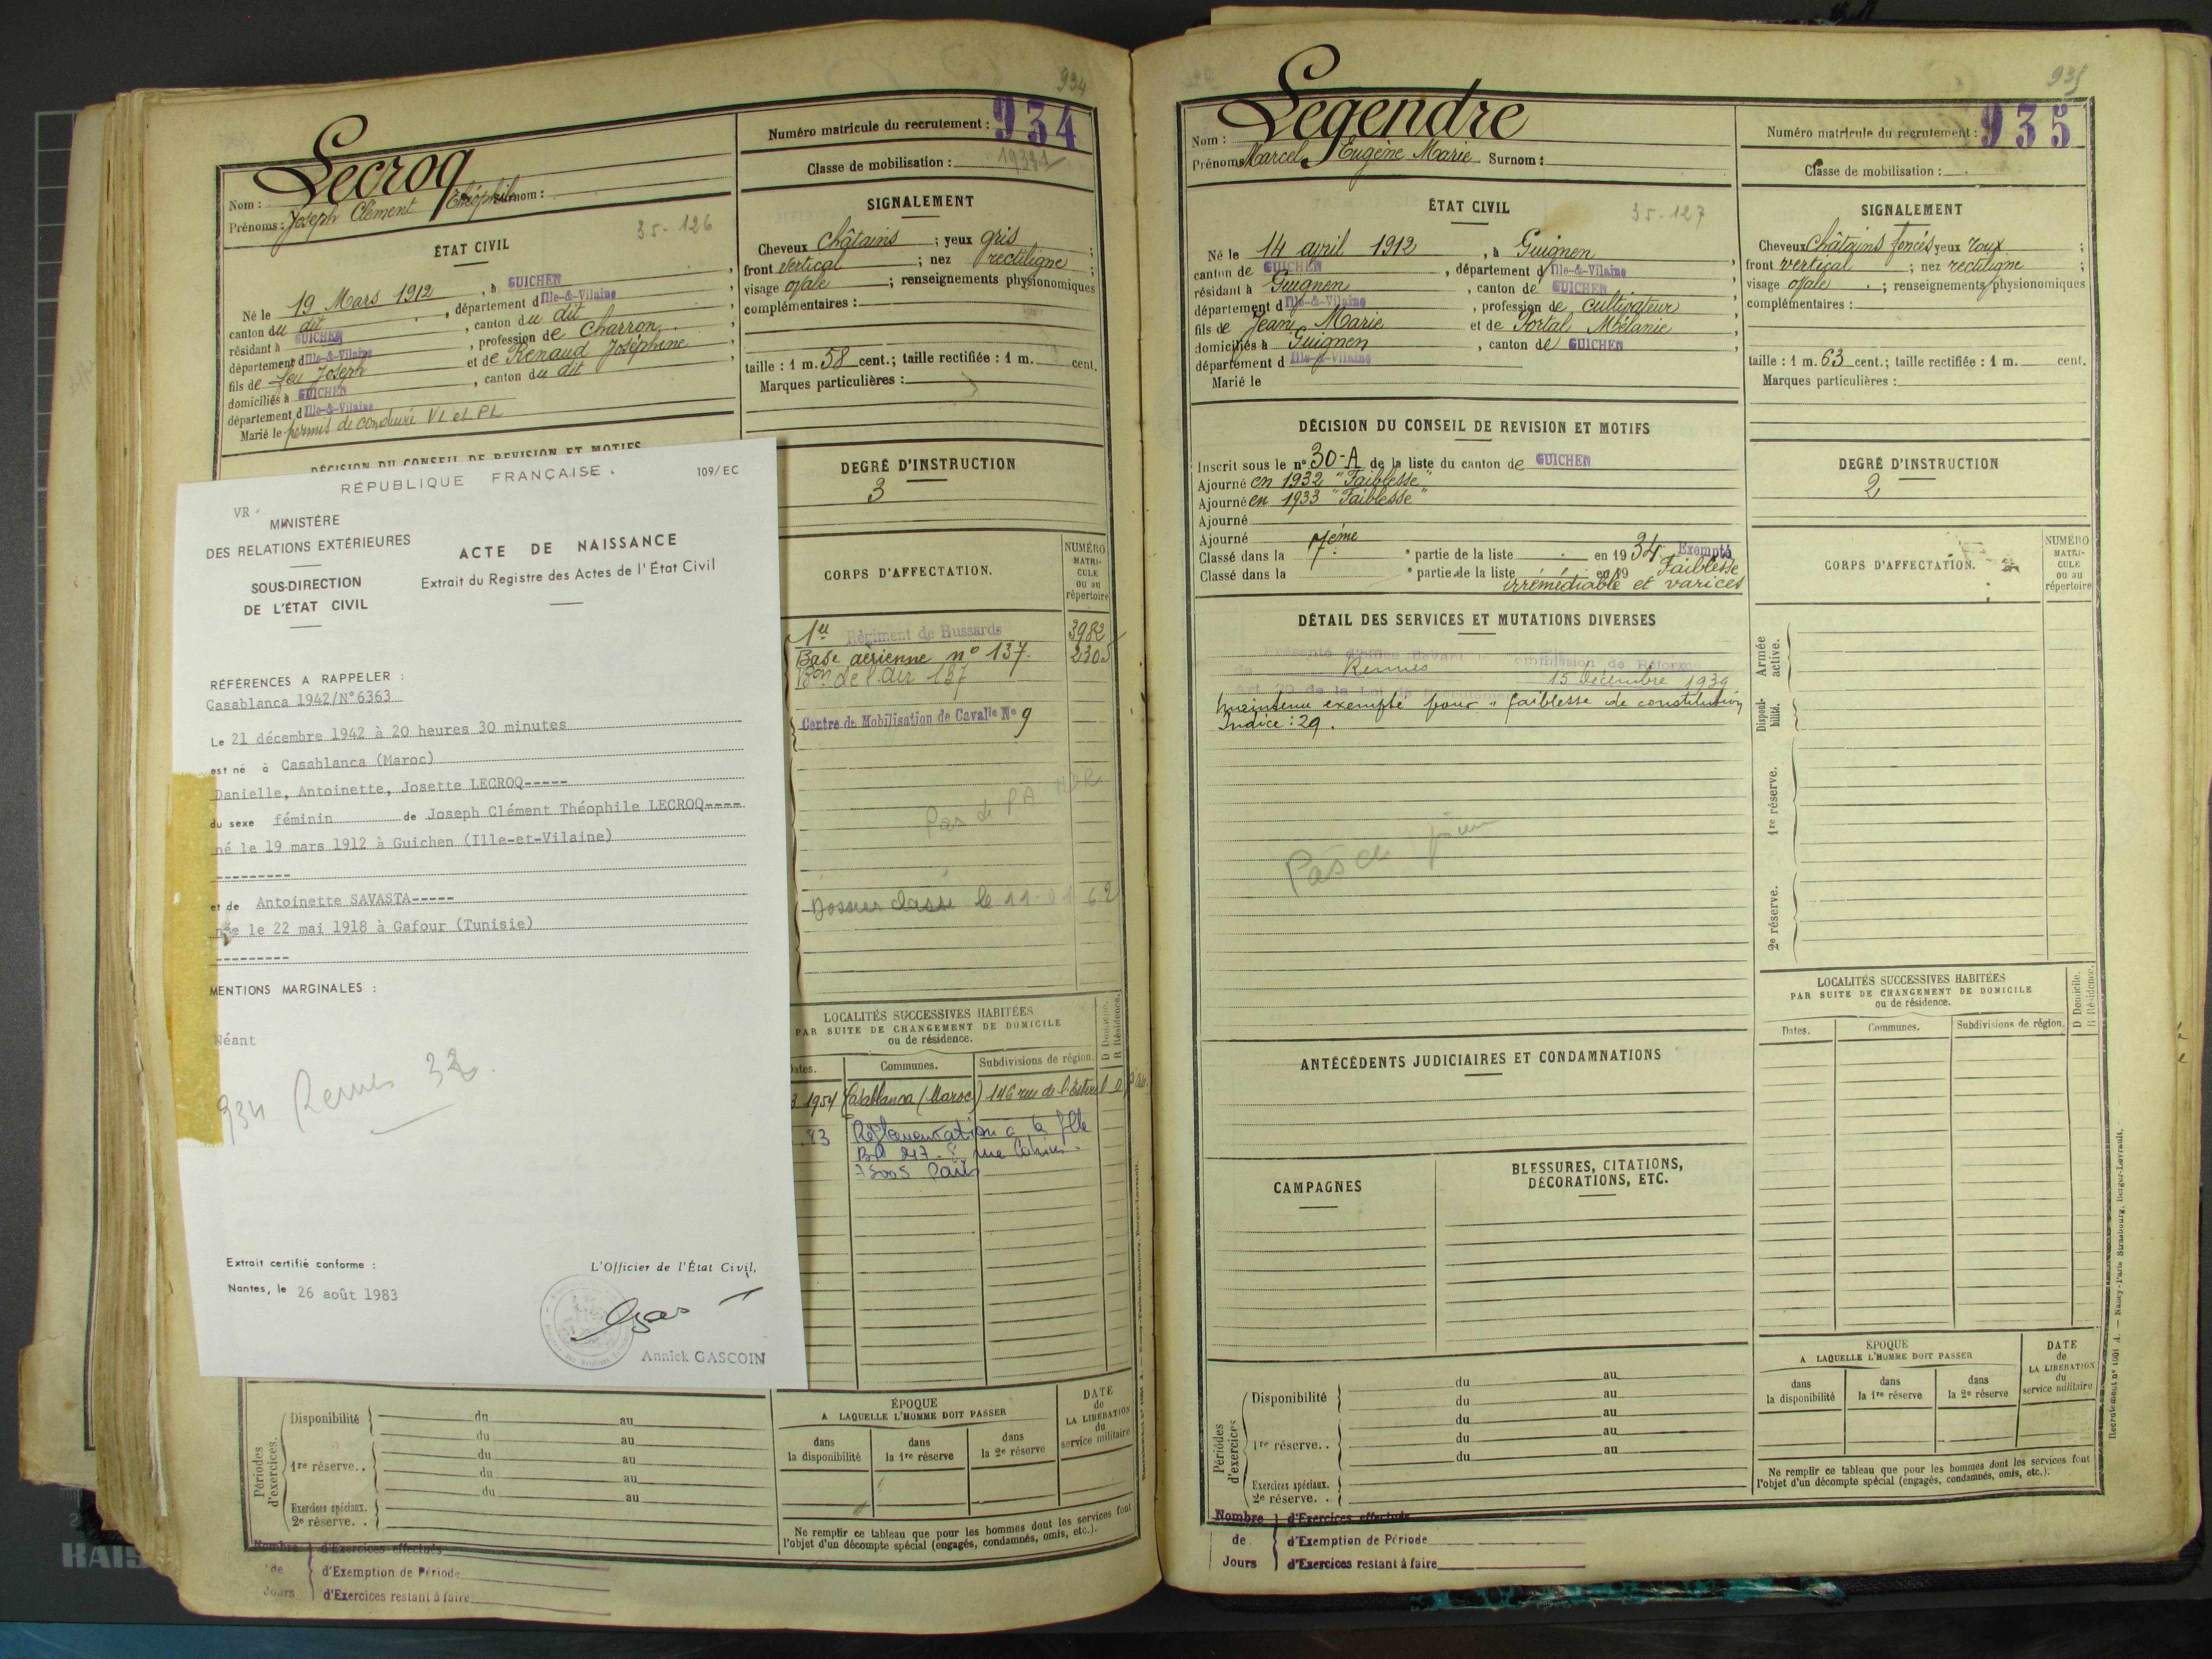 934
Numéro matricule du recrutement : 934
Classe de mobilisation :
Nom : Lecroq
Prénoms : Joseph Clément Théophile Surnom :
35-126
ÉTAT CIVIL
Né le 19 Mars 1912, à GUICHEN
canton du dit, département d Ille-&-Vilaine
résidant à GUICHEN, canton du dit
département d Ille-&-Vilaine, profession de Charron
fils de feu Joseph et de Renaud Joséphine
domiciliés à GUICHEN, canton du dit
département d Ille-&-Vilaine
Marié le permis de conduire VL et PL
DÉCISION DU CONSEIL DE REVISION ET MOTIFS
SIGNALEMENT
Cheveux châtains ; yeux gris ;
front vertical ; nez rectiligne ;
visage ovale ; renseignements physionomiques
complémentaires :
taille : 1 m. 58 cent.; taille rectifiée : 1 m. cent.
Marques particulières :
DEGRÉ D'INSTRUCTION
3
CORPS D'AFFECTATION.
NUMÉRO
MATRI-
CULE
ou au
répertoire
1er Régiment de Hussards 3982
Base aérienne n° 137. 2305
Bon de l'air 137
Centre de Mobilisation de Cavalie N° 9
Pas de PA
Dossier classé le 11-01 62
LOCALITÉS SUCCESSIVES HABITÉES
PAR SUITE DE CHANGEMENT DE DOMICILE
ou de résidence.
D Domicile.
R Résidence.
Dates. Communes. Subdivisions de région.
3 1954 Casablanca (Maroc) 146 rue de
83
75005 Paris
RÉPUBLIQUE FRANÇAISE.
109/EC
VR
MINISTÈRE
DES RELATIONS EXTÉRIEURES
SOUS-DIRECTION
DE L'ÉTAT CIVIL
ACTE DE NAISSANCE
Extrait du Registre des Actes de l'État Civil
RÉFÉRENCES A RAPPELER :
Casablanca 1942/N°6363
Le 21 décembre 1942 à 20 heures 30 minutes
est né à Casablanca (Maroc)
Danielle, Antoinette, Josette LECROQ-----
du sexe féminin de Joseph Clément Théophile LECROQ----
né le 19 mars 1912 à Guichen (Ille-et-Vilaine)
---------
et de Antoinette SAVASTA-----
née le 22 mai 1918 à Gafour (Tunisie)
---------
MENTIONS MARGINALES :
Néant
934 Rennes 32
Extrait certifié conforme :
Nantes, le 26 août 1983
L'Officier de l'État Civil,
Annick GASCOIN
Périodes
d'exercices.
Disponibilité du au
du au
1re réserve.. du au
du au
du au
Exercices spéciaux.
2e réserve. .
Nombre d'Exercices effectués
de d'Exemption de Période
Jours d'Exercices restant à faire
ÉPOQUE
A LAQUELLE L'HOMME DOIT PASSER
dans
la disponibilité
dans
la 1re réserve
dans
la 2e réserve
DATE
de
LA LIBÉRATION
du
service militaire
Ne remplir ce tableau que pour les hommes dont les services font
l'objet d'un décompte spécial (engagés, condamnés, omis, etc.).
935
Numéro matricule du recrutement : 935
Classe de mobilisation :
Nom : Legendre
Prénoms Marcel Eugène Marie Surnom :
ÉTAT CIVIL
35-127
Né le 14 avril 1912, à Guignen
canton de GUICHEN, département d Ille-&-Vilaine
résidant à Guignen, canton de GUICHEN
département d Ille-&-Vilaine, profession de cultivateur
fils de Jean Marie et de Portal Mélanie
domiciliés à Guignen, canton de GUICHEN
département d Ille-&-Vilaine
Marié le
SIGNALEMENT
Cheveux châtains foncés yeux roux ;
front vertical ; nez rectiligne ;
visage ovale ; renseignements physionomiques
complémentaires :
taille : 1 m. 63 cent.; taille rectifiée : 1 m. cent.
Marques particulières :
DÉCISION DU CONSEIL DE REVISION ET MOTIFS
Inscrit sous le n° 30-A de la liste du canton de GUICHEN
Ajourné en 1932 "Faiblesse"
Ajourné en 1933 "Faiblesse"
Ajourné
Ajourné
Classé dans la 7ème partie de la liste en 1934 Exempté
Classé dans la partie de la liste en 19 Faiblesse
irrémédiable et varices
DEGRÉ D'INSTRUCTION
2
DÉTAIL DES SERVICES ET MUTATIONS DIVERSES
Présenté d'office devant la Commission de Réforme
de Rennes 15 décembre 1939
Art. 20 de la Loi de Recrutement
maintenu exempté pour "faiblesse de constitution
Indice : 29.
Pas de
CORPS D'AFFECTATION.
NUMÉRO
MATRI-
CULE
ou au
répertoire
Armée
active.
Disponi-
bilité.
1re réserve.
2e réserve.
ANTÉCÉDENTS JUDICIAIRES ET CONDAMNATIONS
CAMPAGNES
BLESSURES, CITATIONS,
DÉCORATIONS, ETC.
LOCALITÉS SUCCESSIVES HABITÉES
PAR SUITE DE CHANGEMENT DE DOMICILE
ou de résidence.
D Domicile.
R Résidence.
Dates. Communes. Subdivisions de région.
Périodes
d'exercices
Disponibilité du au
du au
du au
1re réserve.. du au
du au
Exercices spéciaux.
2e réserve. .
Nombre d'Exercices effectués
de d'Exemption de Période
Jours d'Exercices restant à faire
ÉPOQUE
A LAQUELLE L'HOMME DOIT PASSER
dans
la disponibilité
dans
la 1re réserve
dans
la 2e réserve
DATE
de
LA LIBÉRATION
du
service militaire
Ne remplir ce tableau que pour les hommes dont les services font
l'objet d'un décompte spécial (engagés, condamnés, omis, etc.).
Recrutement n° 1001 A. — Nancy-Paris-Strasbourg, Berger-Levrault.